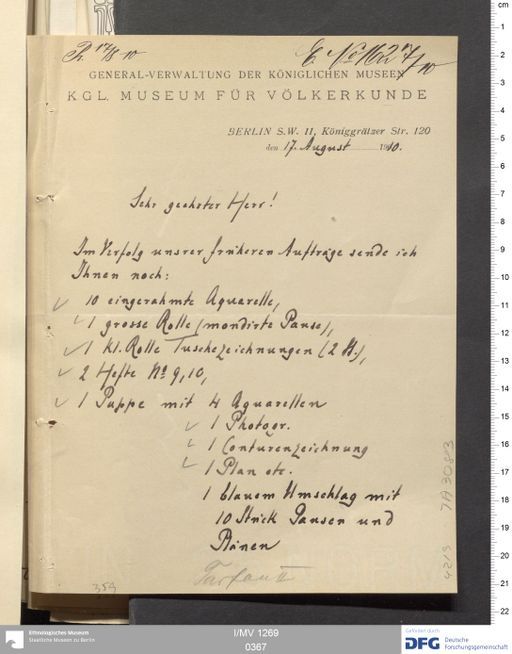 Pr. 17/8 10
E. No 1622 17/8 10
GENERAL-VERWALTUNG DER KÖNIGLICHEN MUSEEN
KGL. MUSEUM FÜR VÖLKERKUNDE
BERLIN S.W. 11, Königgrätzer Str. 120
den 17. August 1910.
Sehr geehrter Herr!
Im Verfolg unsrer früheren Aufträge sende ich
Ihnen noch:
10 eingerahmte Aquarelle,
1 grosse Rolle (mondirte Pause),
1 kl. Rolle Tuschezeichnungen (2 St.),
2 Hefte No 9, 10,
1 Puppe mit 4 Aquarellen
1 Photogr.
1 Conturenzeichnung
1 Plan etc.
1 blauem Umschlag mit
10 Stück Pausen und
Plänen
Turfan II
354
4219 TA 3083
Ethnologisches Museum
Staatliche Museen zu Berlin
I/MV 1269
0367
Gefördert durch
DFG Deutsche
Forschungsgemeinschaft
cm
1
2
3
4
5
6
7
8
9
10
11
12
13
14
15
16
17
18
19
20
21
22